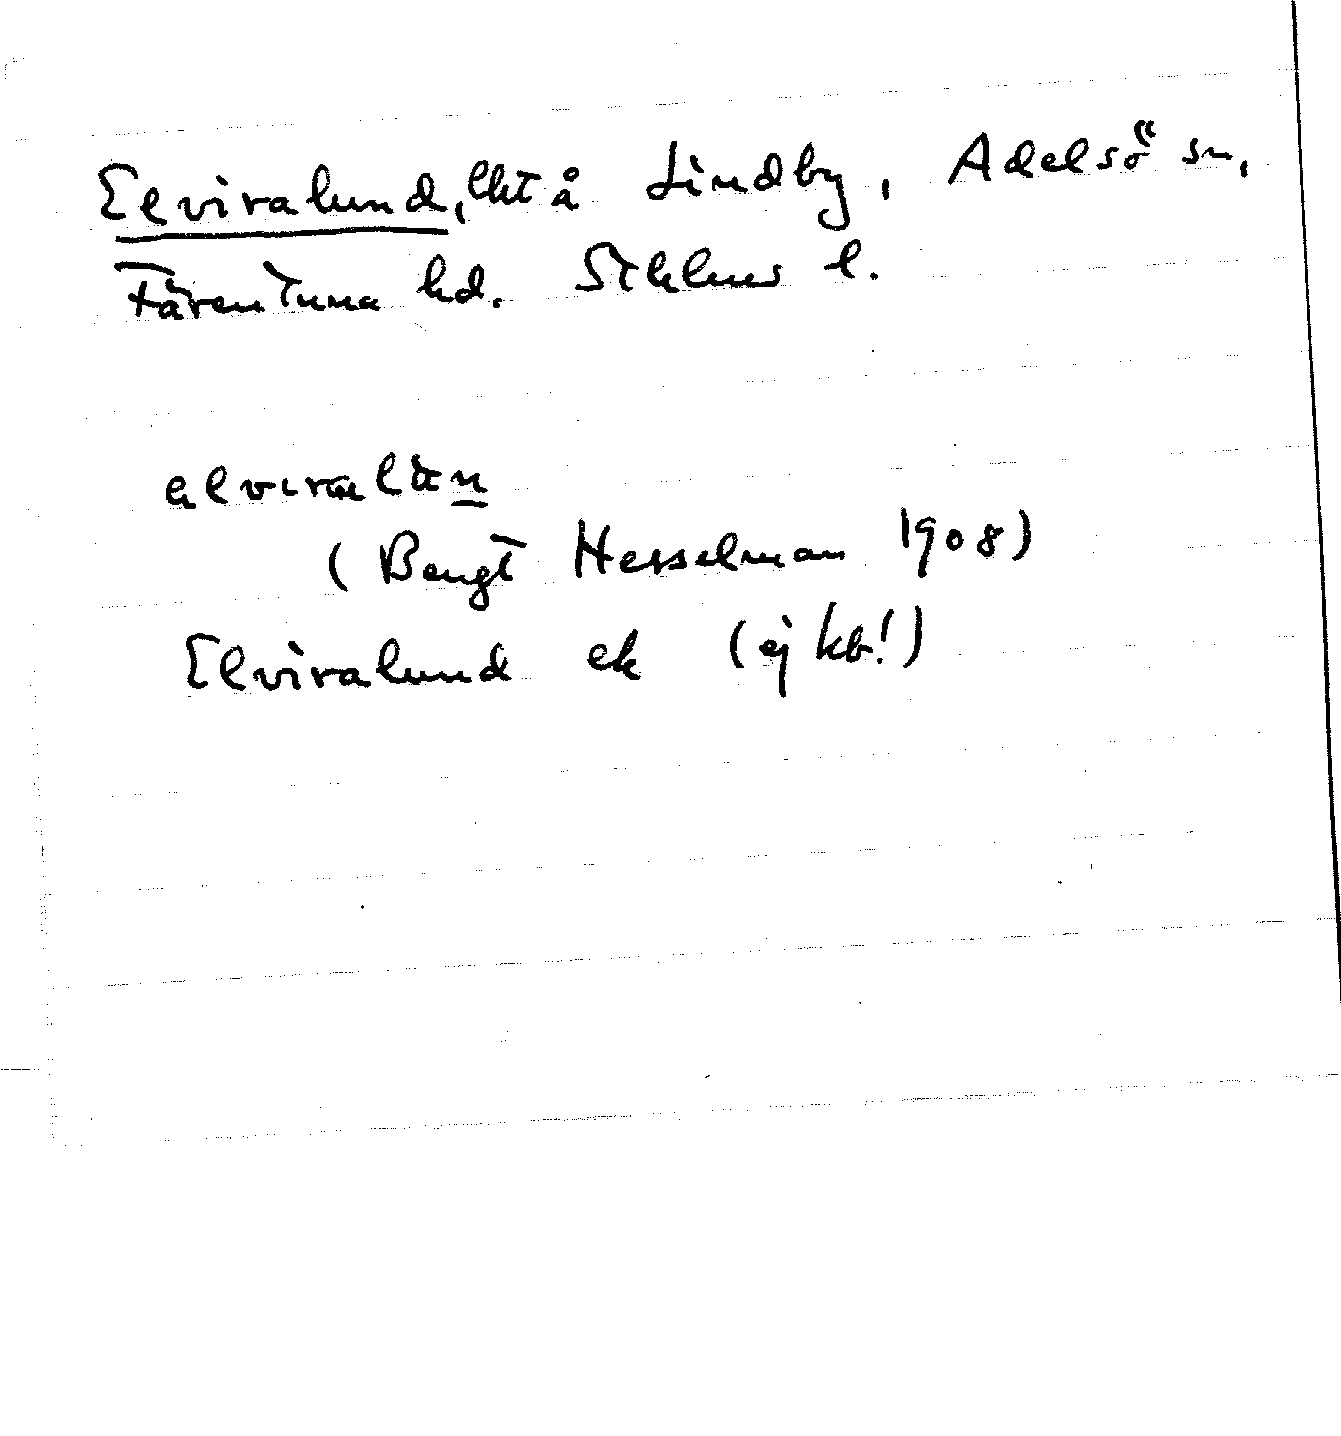 Elviralund, lht å Lindby, Adelsö sn,
Färentuna hd. Sthlms l.
elviralön
(Bengt Hesselman 1908)
Elviralund ek (ej kb!)